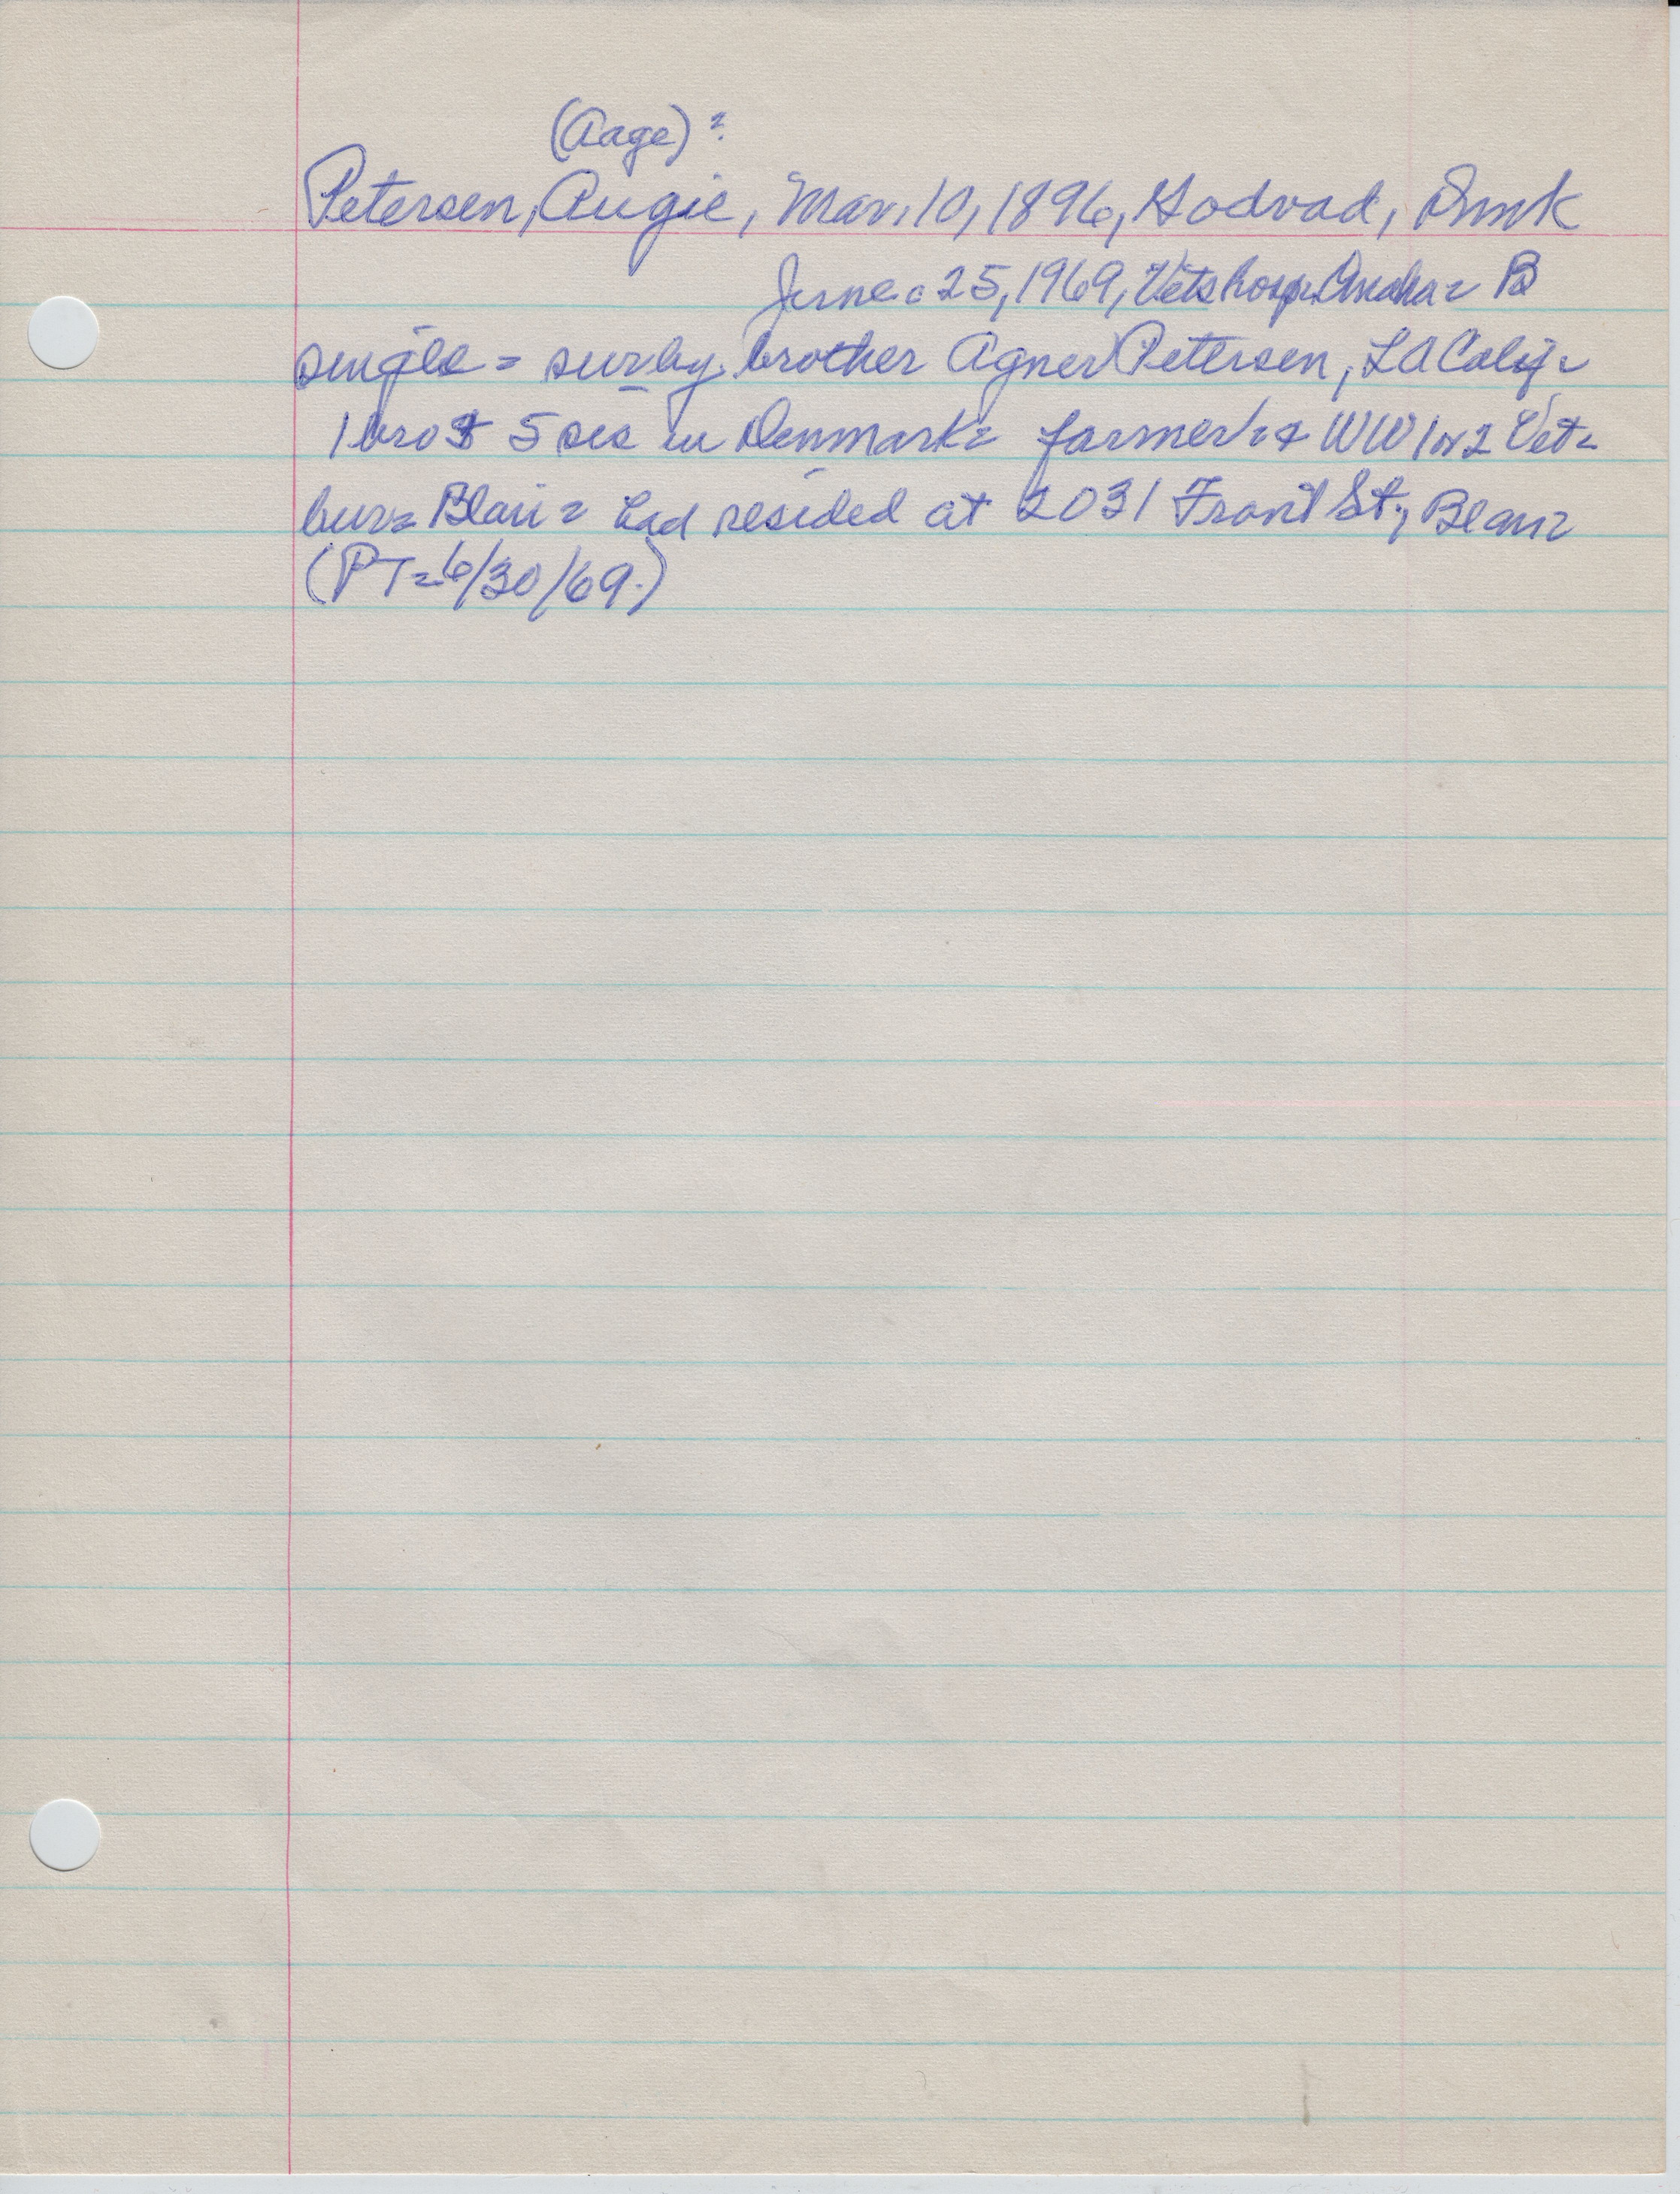 (Aage)?
Petersen, Augie, Mar. 10, 1896, Hodvad, Dmk
June 25, 1969, Vets hosp. Omaha = B
single = sur by brother Agner Petersen, LA Calif =
1 bro & 5 sis in Denmark = farmer & WW 1 or 2 Vet =
bur = Blair = had resided at 2031 Front St, Blair =
(PT = 6/30/69.)